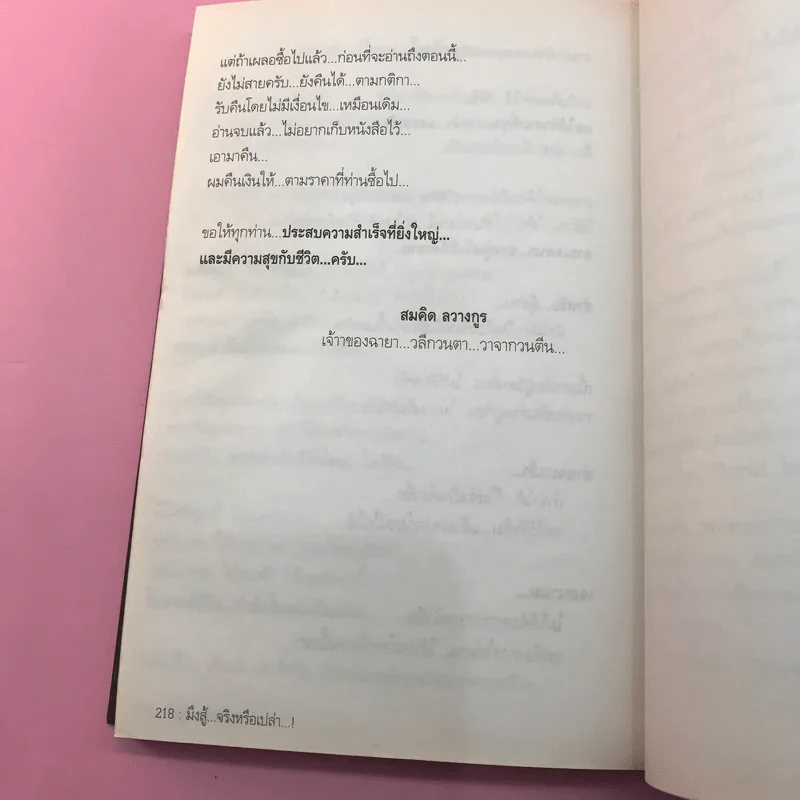 แต่ถ้าเผลอซื้อไปแล้ว...ก่อนที่จะอ่านถึงตอนนี้...
ยังไม่สายครับ...ยังคืนได้...ตามกติกา
รับคืนโดยไม่มีเงื่อนไข...เหมือนเดิม...
อ่านจบแล้ว...ไม่อยากเก็บหนังสือไว้...
เอามาคืน...
ผมคืนเงินให้...ตามราคาที่ท่านซื้อไป...
ขอให้ทุกท่าน...ประสบความสำเร็จที่ยิ่งใหญ่...
และมีความสุขกับชีวิต...ครับ...
สมคิด ลวางกูร
เจ้าาของฉายา...วลีกวนตา...วาจากวนตีน...
218 : มึงสู้...จริงหรือเปล่า...!